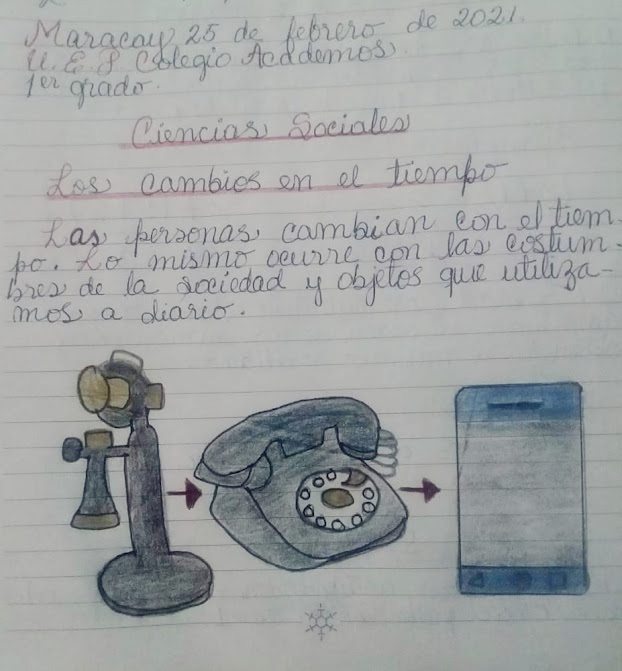 Maracay 25 de febrero de 2021.
U. E. P Colegio Acddemos.
1er grado.
Ciencias Sociales
Los cambios en el tiempo
Las personas cambian con el tiem-
po. Lo mismo ocurre con las costum-
bres de la sociedad y objetos que utiliza-
mos a diario.